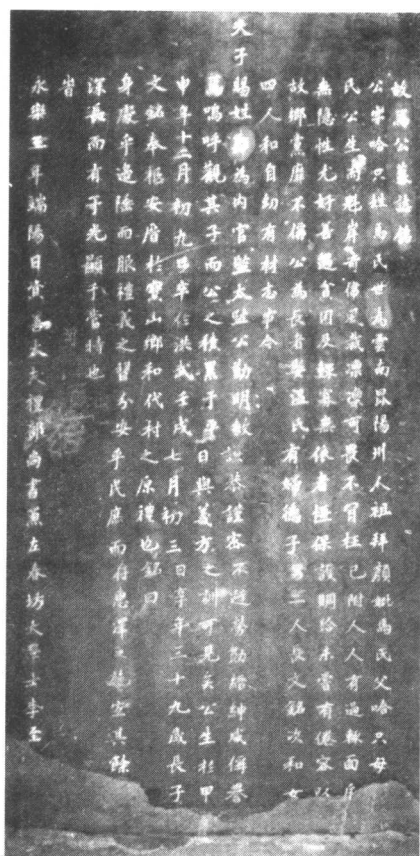 故馬公墓誌銘
公字哈只姓馬氏世為雲南昆陽州人祖拜顏妣馬氏父哈只母
氏公生而魁岸奇偉風裁凜凜可畏不肯枉己附人人有過輒面斥
無隱性尤好善遇貧困及鰥寡無依者恆保護賙給未嘗有倦容以
故鄉黨靡不稱公為長者娶溫氏有婦德子男二人長文銘次和女
四人和自幼有材志事今
天子賜姓鄭為內官監太監公勤明敏謙恭謹密不避勞勩縉紳咸稱譽
焉嗚呼觀其子而公之積累于平日與義方之訓可見矣公生於甲
申年十二月初九日卒於洪武壬戌七月初三日享年三十九歲長子
文銘奉柩安厝於寶山鄉和代村之原禮也銘曰
身處乎邊陲而服禮義之習分安乎民庶而存惠澤之施宜其餘
深長而有子光顯于當時也
旹
永樂三年端陽日資善大夫禮部尚書兼左春坊大學士李至